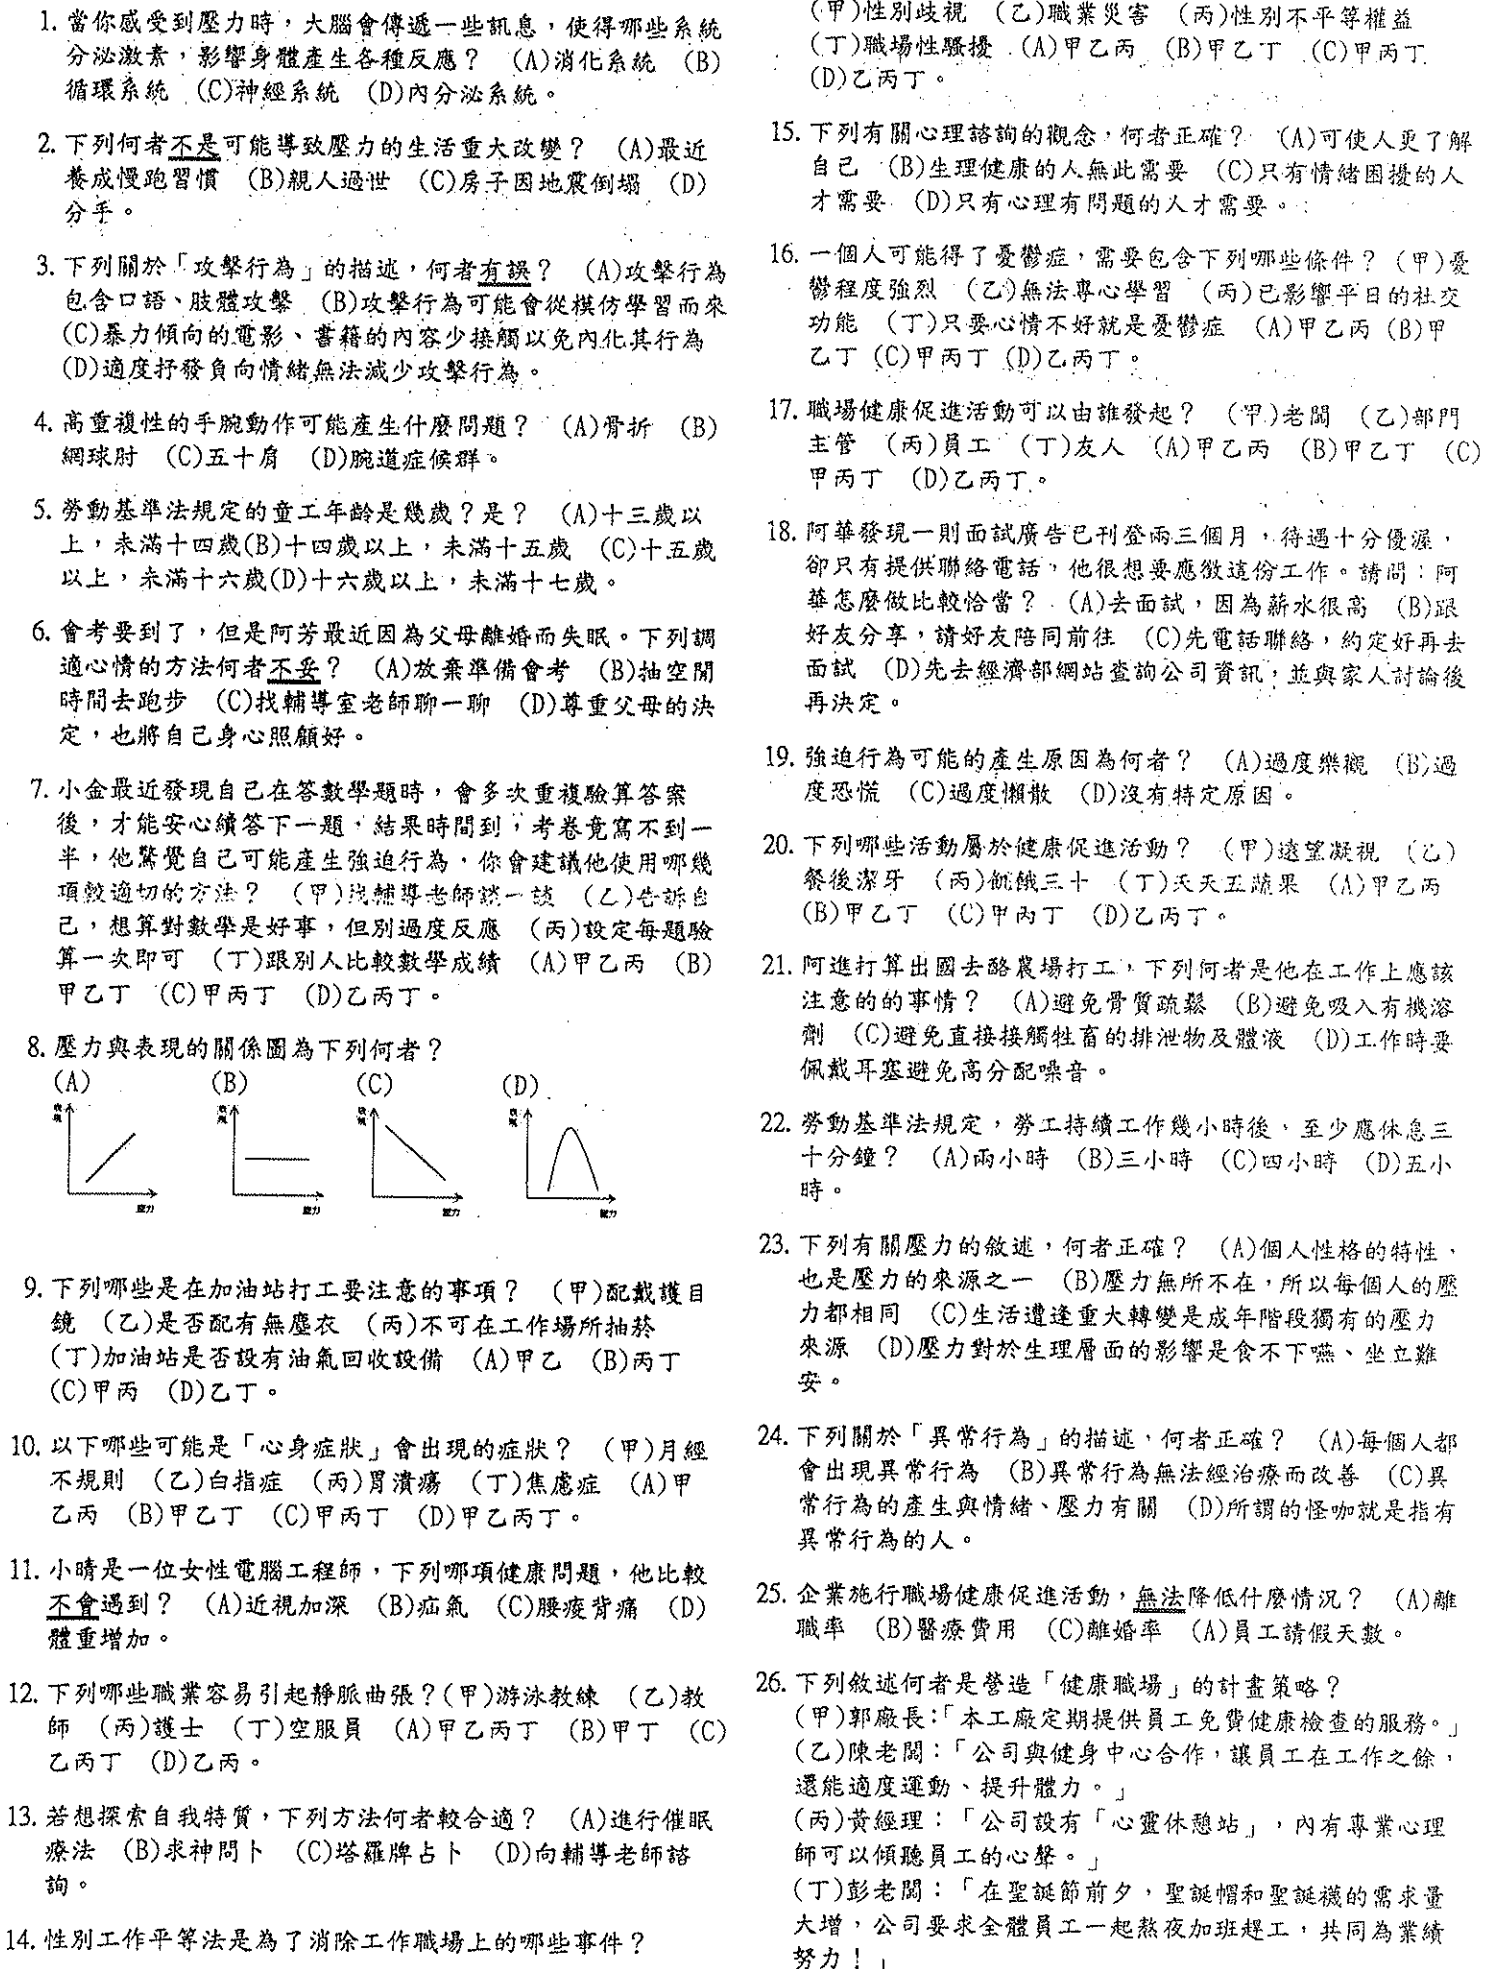 1. 當你感受到壓力時，大腦會傳遞一些訊息，使得哪些系統
分泌激素，影響身體產生各種反應？ (A)消化系統 (B)
循環系統 (C)神經系統 (D)內分泌系統。
2. 下列何者不是可能導致壓力的生活重大改變？ (A)最近
養成慢跑習慣 (B)親人過世 (C)房子因地震倒塌 (D)
分手。
3. 下列關於「攻擊行為」的描述，何者有誤？ (A)攻擊行為
包含口語、肢體攻擊 (B)攻擊行為可能會從模仿學習而來
(C)暴力傾向的電影、書籍的內容少接觸以免內化其行為
(D)適度抒發負向情緒無法減少攻擊行為。
4. 高重複性的手腕動作可能產生什麼問題？ (A)骨折 (B)
網球肘 (C)五十肩 (D)腕道症候群。
5. 勞動基準法規定的童工年齡是幾歲？是？ (A)十三歲以
上，未滿十四歲(B)十四歲以上，未滿十五歲 (C)十五歲
以上，未滿十六歲(D)十六歲以上，未滿十七歲。
6. 會考要到了，但是阿芳最近因為父母離婚而失眠。下列調
適心情的方法何者不妥？ (A)放棄準備會考 (B)抽空閒
時間去跑步 (C)找輔導室老師聊一聊 (D)尊重父母的決
定，也將自己身心照顧好。
7. 小金最近發現自己在答數學題時，會多次重複驗算答案
後，才能安心續答下一題，結果時間到，考卷竟寫不到一
半，他驚覺自己可能產生強迫行為，你會建議他使用哪幾
項較適切的方法？ (甲)找輔導老師談一談 (乙)告訴自
己，想算對數學是好事，但別過度反應 (丙)設定每題驗
算一次即可 (丁)跟別人比較數學成績 (A)甲乙丙 (B)
甲乙丁 (C)甲丙丁 (D)乙丙丁。
8. 壓力與表現的關係圖為下列何者？
(A) (B) (C) (D)
表現 表現 表現 表現
壓力 壓力 壓力 壓力
9. 下列哪些是在加油站打工要注意的事項？ (甲)配戴護目
鏡 (乙)是否配有無塵衣 (丙)不可在工作場所抽菸
(丁)加油站是否設有油氣回收設備 (A)甲乙 (B)丙丁
(C)甲丙 (D)乙丁。
10. 以下哪些可能是「心身症狀」會出現的症狀？ (甲)月經
不規則 (乙)白指症 (丙)胃潰瘍 (丁)焦慮症 (A)甲
乙丙 (B)甲乙丁 (C)甲丙丁 (D)甲乙丙丁。
11. 小晴是一位女性電腦工程師，下列哪項健康問題，他比較
不會遇到？ (A)近視加深 (B)疝氣 (C)腰痠背痛 (D)
體重增加。
12. 下列哪些職業容易引起靜脈曲張？(甲)游泳教練 (乙)教
師 (丙)護士 (丁)空服員 (A)甲乙丙丁 (B)甲丁 (C)
乙丙丁 (D)乙丙。
13. 若想探索自我特質，下列方法何者較合適？ (A)進行催眠
療法 (B)求神問卜 (C)塔羅牌占卜 (D)向輔導老師諮
詢。
14. 性別工作平等法是為了消除工作職場上的哪些事件？
(甲)性別歧視 (乙)職業災害 (丙)性別不平等權益
(丁)職場性騷擾 (A)甲乙丙 (B)甲乙丁 (C)甲丙丁
(D)乙丙丁。
15. 下列有關心理諮詢的觀念，何者正確？ (A)可使人更了解
自己 (B)生理健康的人無此需要 (C)只有情緒困擾的人
才需要 (D)只有心理有問題的人才需要。
16. 一個人可能得了憂鬱症，需要包含下列哪些條件？(甲)憂
鬱程度強烈 (乙)無法專心學習 (丙)已影響平日的社交
功能 (丁)只要心情不好就是憂鬱症 (A)甲乙丙 (B)甲
乙丁 (C)甲丙丁 (D)乙丙丁。
17. 職場健康促進活動可以由誰發起？ (甲)老闆 (乙)部門
主管 (丙)員工 (丁)友人 (A)甲乙丙 (B)甲乙丁 (C)
甲丙丁 (D)乙丙丁。
18. 阿華發現一則面試廣告已刊登兩三個月，待遇十分優渥，
卻只有提供聯絡電話，他很想要應徵這份工作。請問：阿
華怎麼做比較恰當？ (A)去面試，因為薪水很高 (B)跟
好友分享，請好友陪同前往 (C)先電話聯絡，約定好再去
面試 (D)先去經濟部網站查詢公司資訊，並與家人討論後
再決定。
19. 強迫行為可能的產生原因為何者？ (A)過度樂觀 (B)過
度恐慌 (C)過度懶散 (D)沒有特定原因。
20. 下列哪些活動屬於健康促進活動？ (甲)遠望凝視 (乙)
餐後潔牙 (丙)飢餓三十 (丁)天天五蔬果 (A)甲乙丙
(B)甲乙丁 (C)甲丙丁 (D)乙丙丁。
21. 阿進打算出國去酪農場打工，下列何者是他在工作上應該
注意的的事情？ (A)避免骨質疏鬆 (B)避免吸入有機溶
劑 (C)避免直接接觸牲畜的排泄物及體液 (D)工作時要
佩戴耳塞避免高分配噪音。
22. 勞動基準法規定，勞工持續工作幾小時後，至少應休息三
十分鐘？ (A)兩小時 (B)三小時 (C)四小時 (D)五小
時。
23. 下列有關壓力的敘述，何者正確？ (A)個人性格的特性，
也是壓力的來源之一 (B)壓力無所不在，所以每個人的壓
力都相同 (C)生活遭逢重大轉變是成年階段獨有的壓力
來源 (D)壓力對於生理層面的影響是食不下嚥、坐立難
安。
24. 下列關於「異常行為」的描述，何者正確？ (A)每個人都
會出現異常行為 (B)異常行為無法經治療而改善 (C)異
常行為的產生與情緒、壓力有關 (D)所謂的怪咖就是指有
異常行為的人。
25. 企業施行職場健康促進活動，無法降低什麼情況？ (A)離
職率 (B)醫療費用 (C)離婚率 (A)員工請假天數。
26. 下列敘述何者是營造「健康職場」的計畫策略？
(甲)郭廠長：「本工廠定期提供員工免費健康檢查的服務。」
(乙)陳老闆：「公司與健身中心合作，讓員工在工作之餘，
還能適度運動、提升體力。」
(丙)黃經理：「公司設有「心靈休憩站」，內有專業心理
師可以傾聽員工的心聲。」
(丁)彭老闆：「在聖誕節前夕，聖誕帽和聖誕襪的需求量
大增，公司要求全體員工一起熬夜加班趕工，共同為業績
努力！」